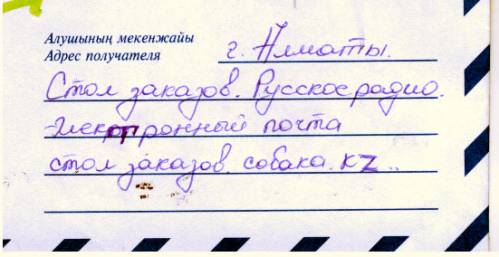 Алушының мекенжайы
Адрес получателя г. Алматы.
Стол заказов. Русское радио.
-электронный почта
стол заказов. собака. KZ..